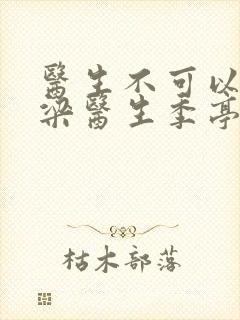 醫生不可以
梁醫生季亭
枯木部落